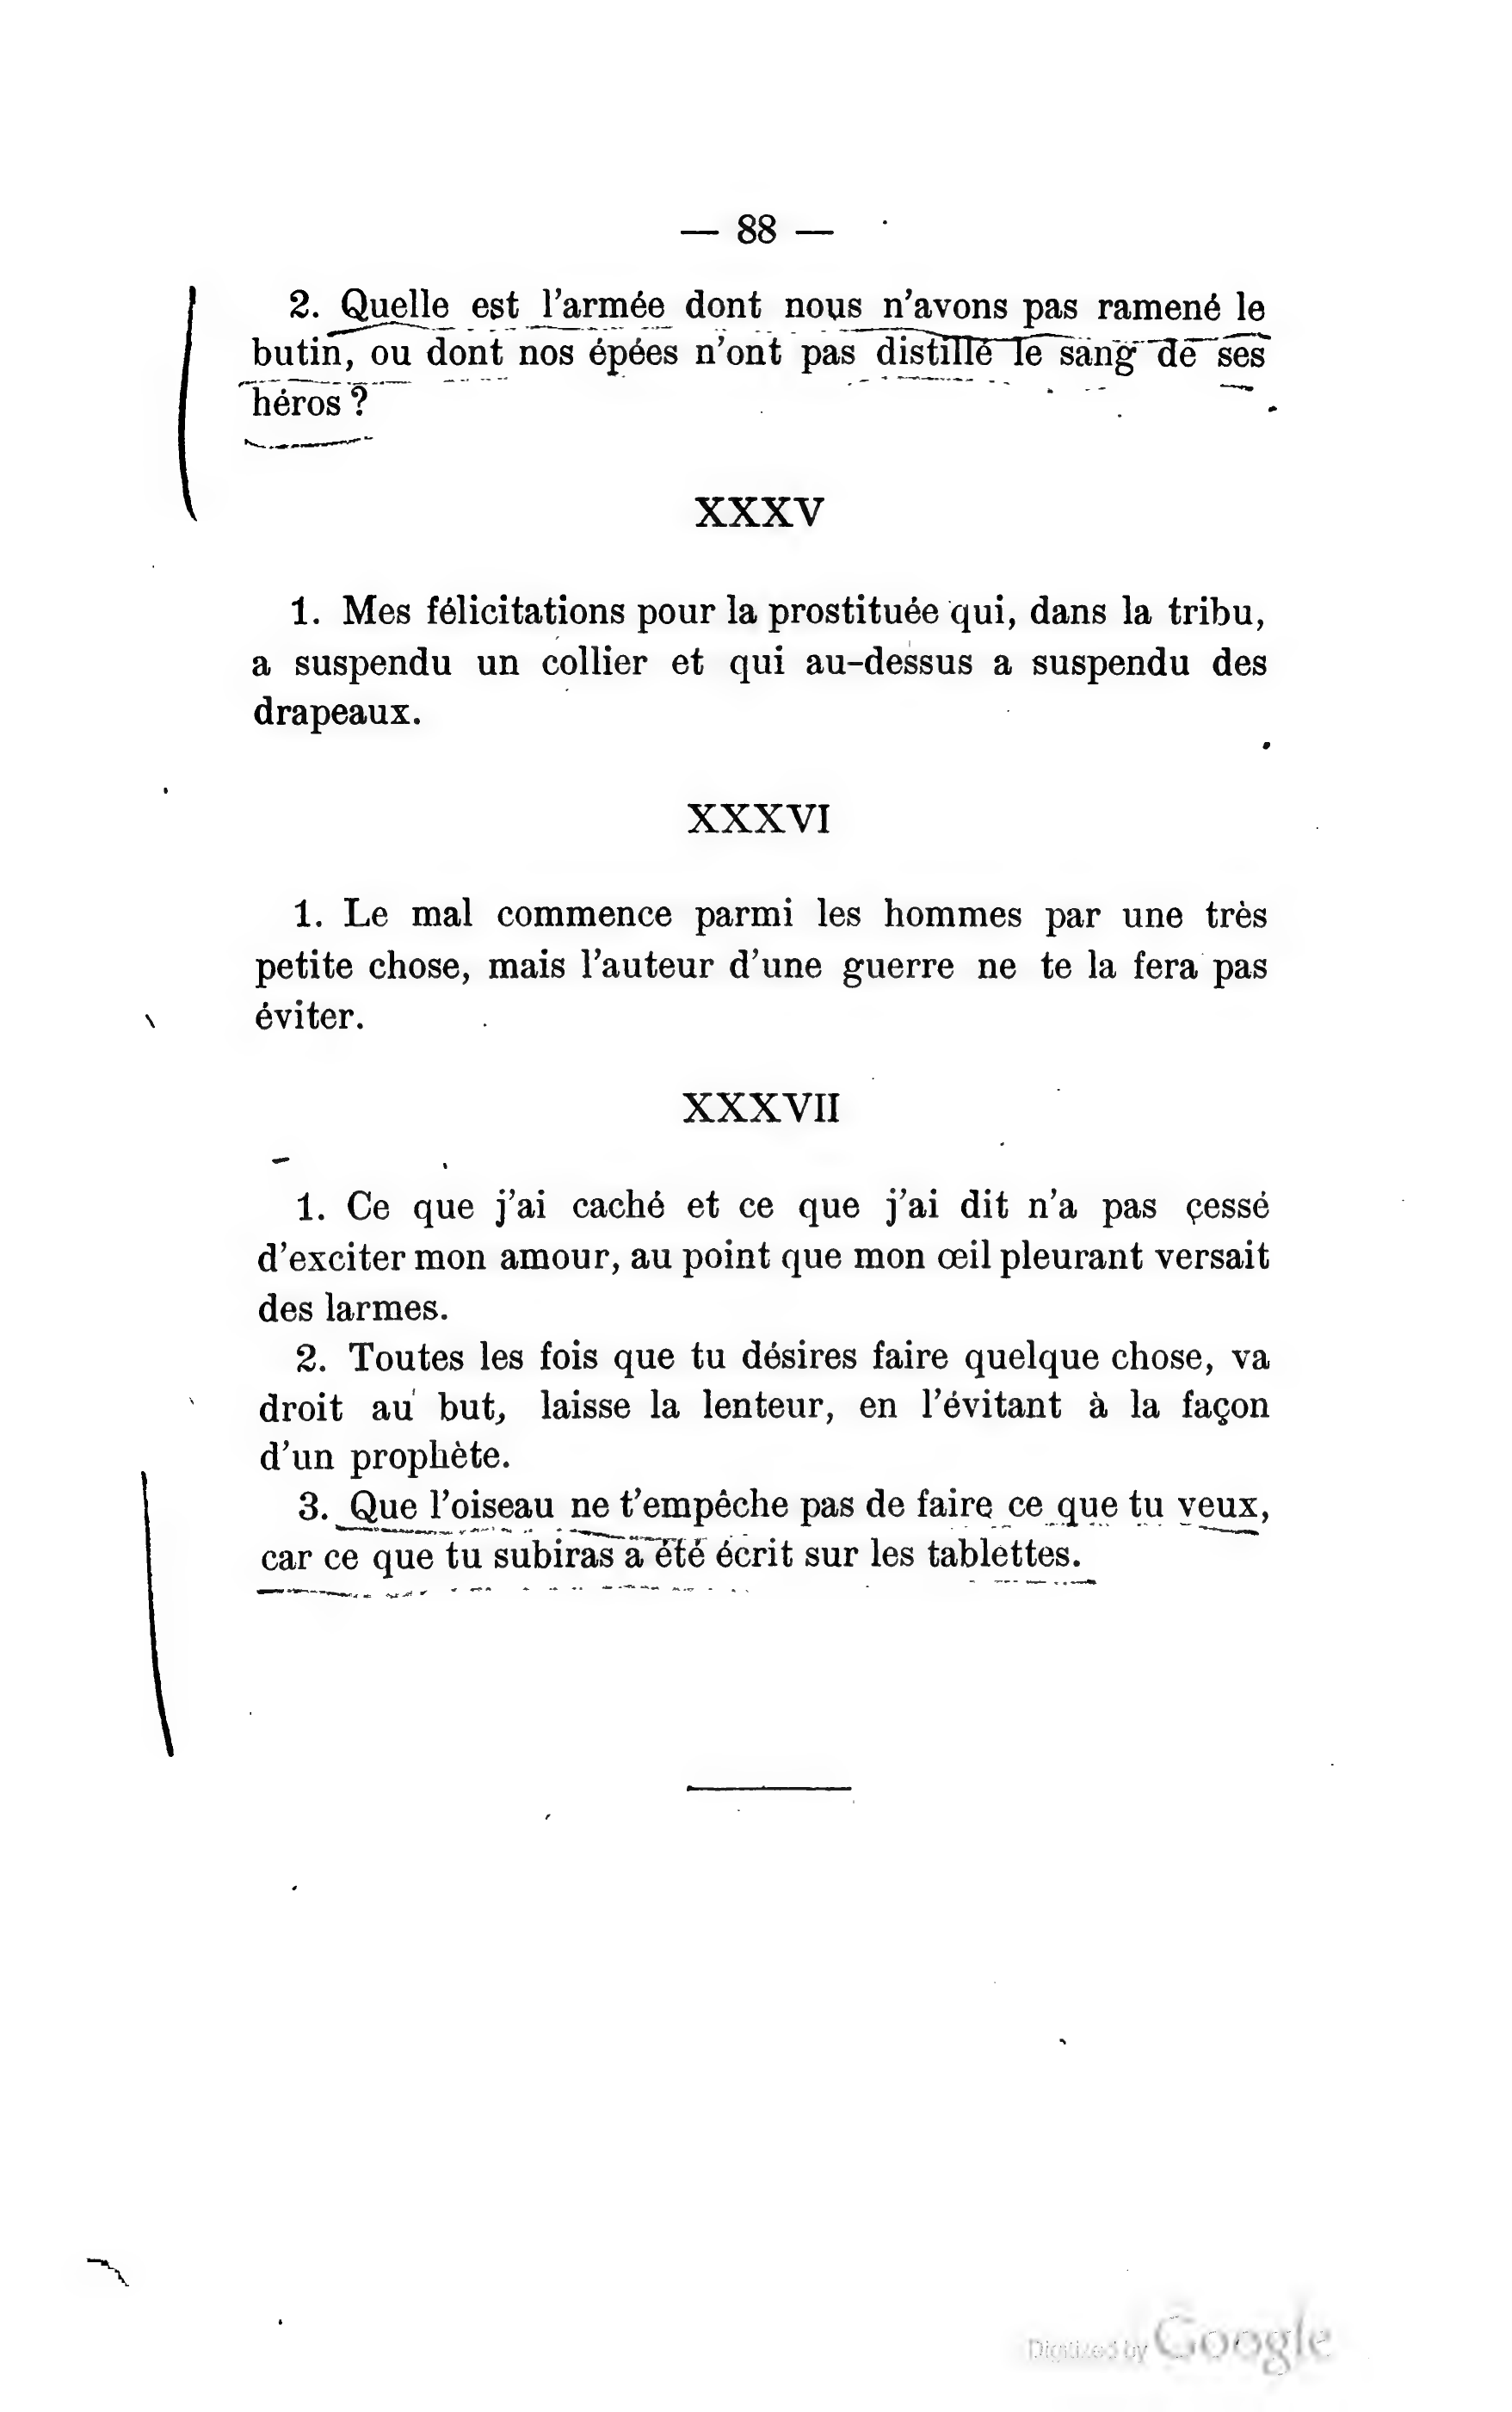 — 88 —
2. Quelle est l'armée dont nous n'avons pas ramené le
butin, ou dont nos épées n'ont pas distillé le sang de ses
héros ?
XXXV
1. Mes félicitations pour la prostituée qui, dans la tribu,
a suspendu un collier et qui au-dessus a suspendu des
drapeaux.
XXXVI
1. Le mal commence parmi les hommes par une très
petite chose, mais l'auteur d'une guerre ne te la fera pas
éviter.
XXXVII
1. Ce que j'ai caché et ce que j'ai dit n'a pas çessé
d'exciter mon amour, au point que mon œil pleurant versait
des larmes.
2. Toutes les fois que tu désires faire quelque chose, va
droit au but, laisse la lenteur, en l'évitant à la façon
d'un prophète.
3. Que l'oiseau ne t'empêche pas de faire ce que tu veux,
car ce que tu subiras a été écrit sur les tablettes.
Digitized by Google